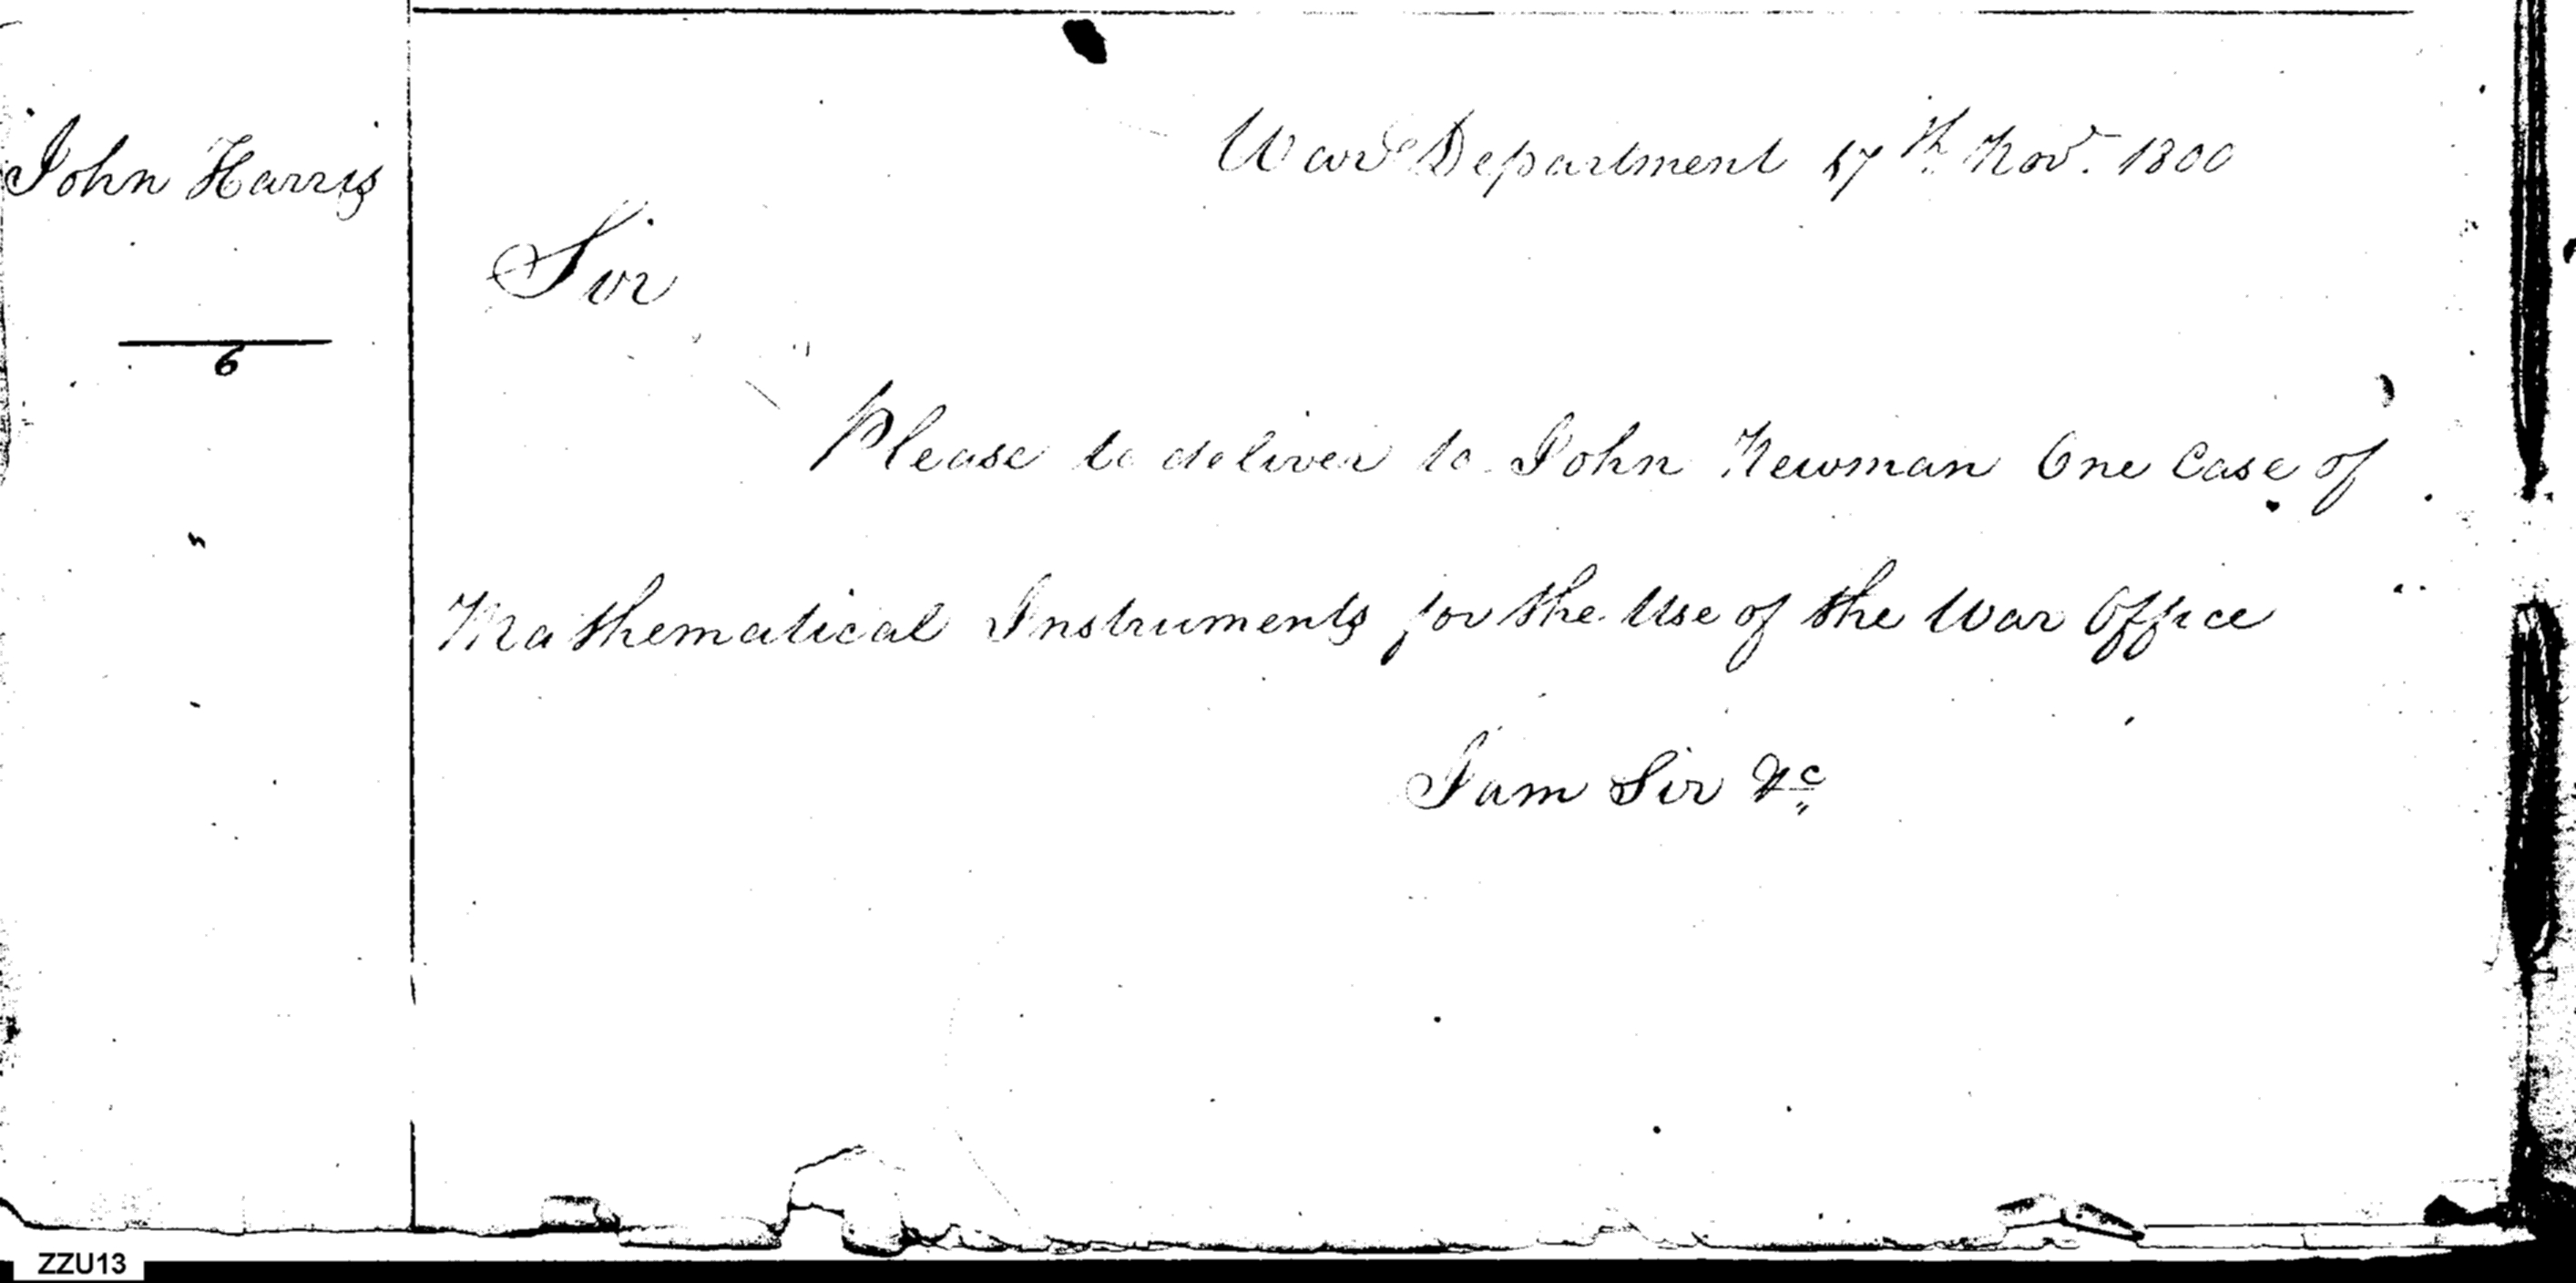 John Harris
6
War Department 17th Nov. 1800
Sir
Please to deliver to John Newman One Case of
Mathematical Instruments for the Use of the War Office
I am Sir &c
ZZU13